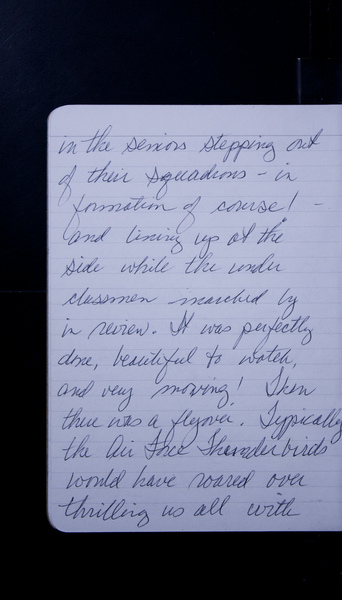 in the seniors stepping out
of their squadrons - in
formation of course! -
and lining up at the
side while the under
classmen marched by
in review. It was perfectly
done, beautiful to watch,
and very moving! Then
there was a flyover. Typically
the Air Force Thunderbirds
would have roared over
thrilling us all with